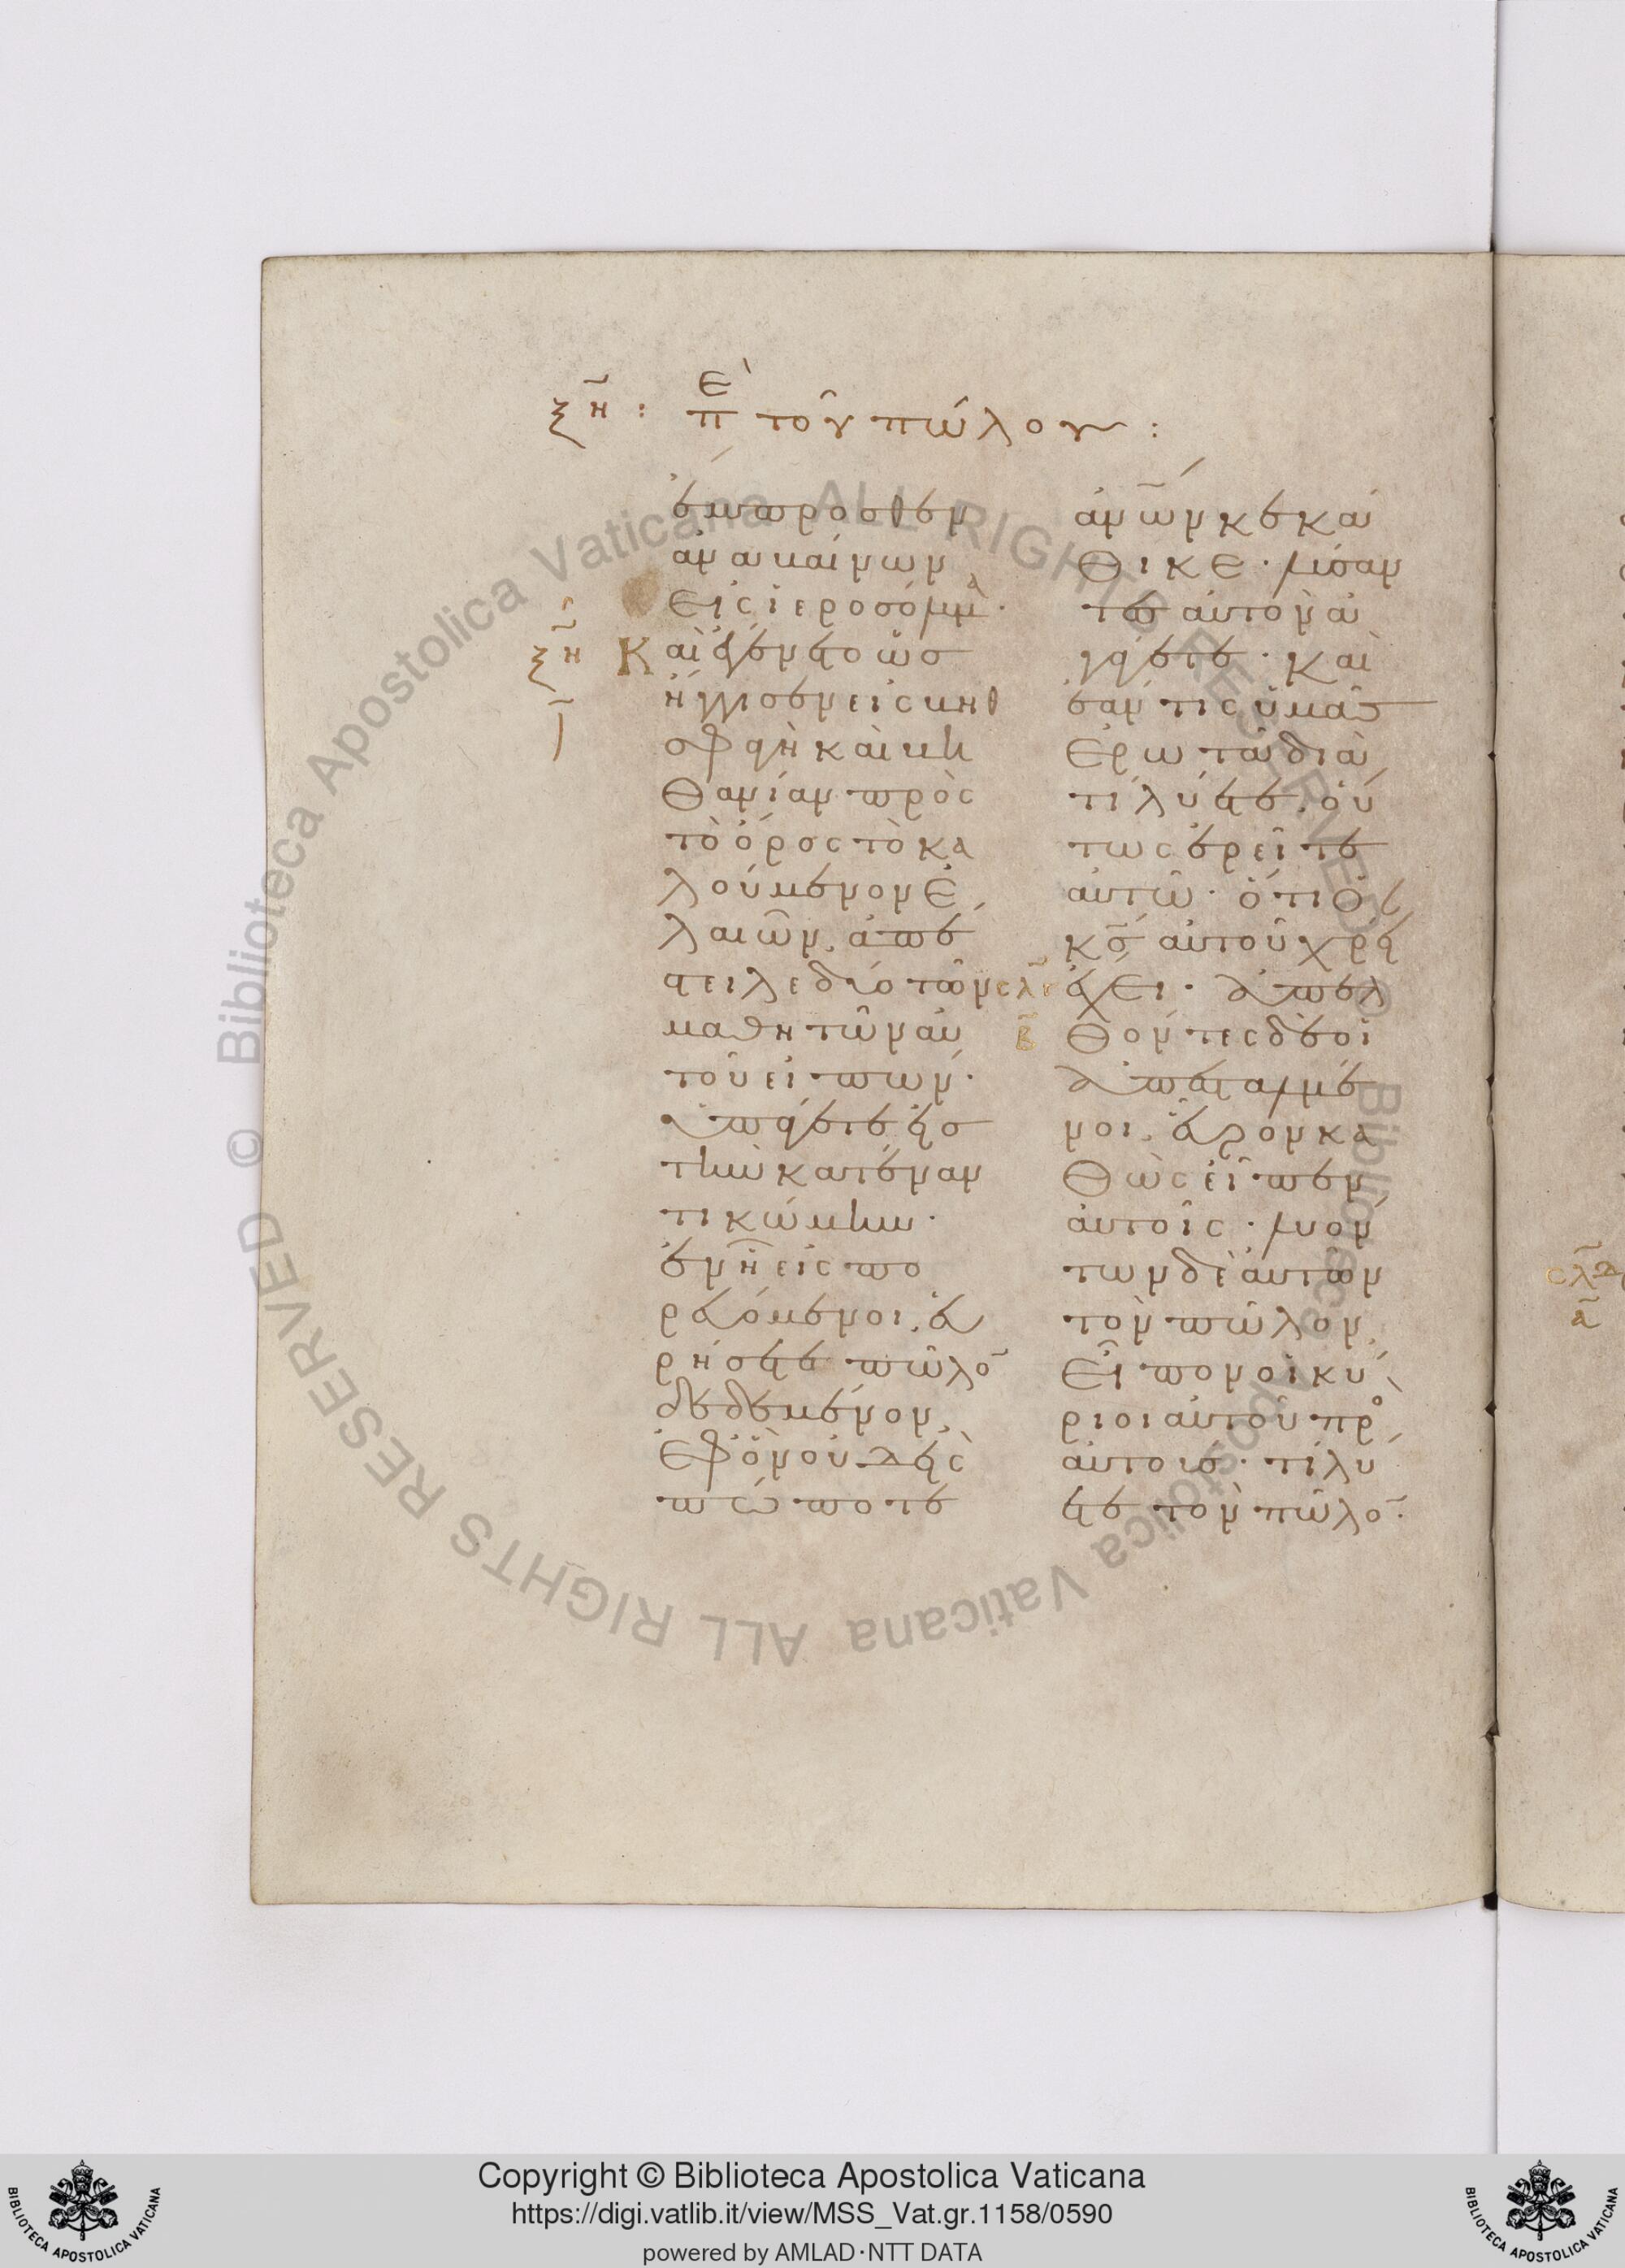 ξη : Επὶ τοῦ πώλου :
ἔμπροσθεν
ἀναβαίνων
εἰς ἱεροσόλυμα.
ξη Καὶ ἐγένετο ὡσ
ἤγγισεν εἰς βηθ
σφαγὴ καὶ βη
θανίαν πρὸς
τὸ ὄρος τὸ κα
λούμενον ἐ
λαιῶν, ἀπέ
στειλε δύο τῶν
μαθητῶν αὐ
τοῦ εἰπών·
ὑπάγετε εἰσ
τὴν κατέναν
τι κώμην·
ἐν ῇ εἰσπο
ρευόμενοι, εὑ
ρήσετε πῶλο̄
δεδεμένον,
ἐφ ὃν οὐδεὶς
πώποτε
ἀνω̅ν κεκά
θικε· λύσαν
τες αὐτὸν ἀ
γάγετε· καὶ
ἐάν τις ὑμᾶς
ἐρωτᾶ διὰ
τί λύετε, οὕ
τως ἐρεῖτε
αὐτῶ· ὅτι ὁ
κ̅ς αὐτοῦ χρεί
σλβ αν ἔχει· ἀπελ
β θόντες δὲ οἱ
ἀπεσταλμέ
νοι, εὗρον κα
θὼς εἶπεν
αὐτοῖς· λυόν
των δὲ αὐτῶν
τὸν πῶλον,
εἶπον οἱ κύ
ριοι αὐτοῦ πρὸς
αὐτους· τί λύ
ετε τὸν πῶλο̄·
σλδ
α
Copyright © Biblioteca Apostolica Vaticana
https://digi.vatlib.it/view/MSS_Vat.gr.1158/0590
powered by AMLAD·NTT DATA
BIBLIOTECA APOSTOLICA VATICANA
BIBLIOTECA APOSTOLICA VATICANA
© Biblioteca Apostolica Vaticana ALL RIGHTS RESERVED
© Biblioteca Apostolica Vaticana ALL RIGHTS RESERVED